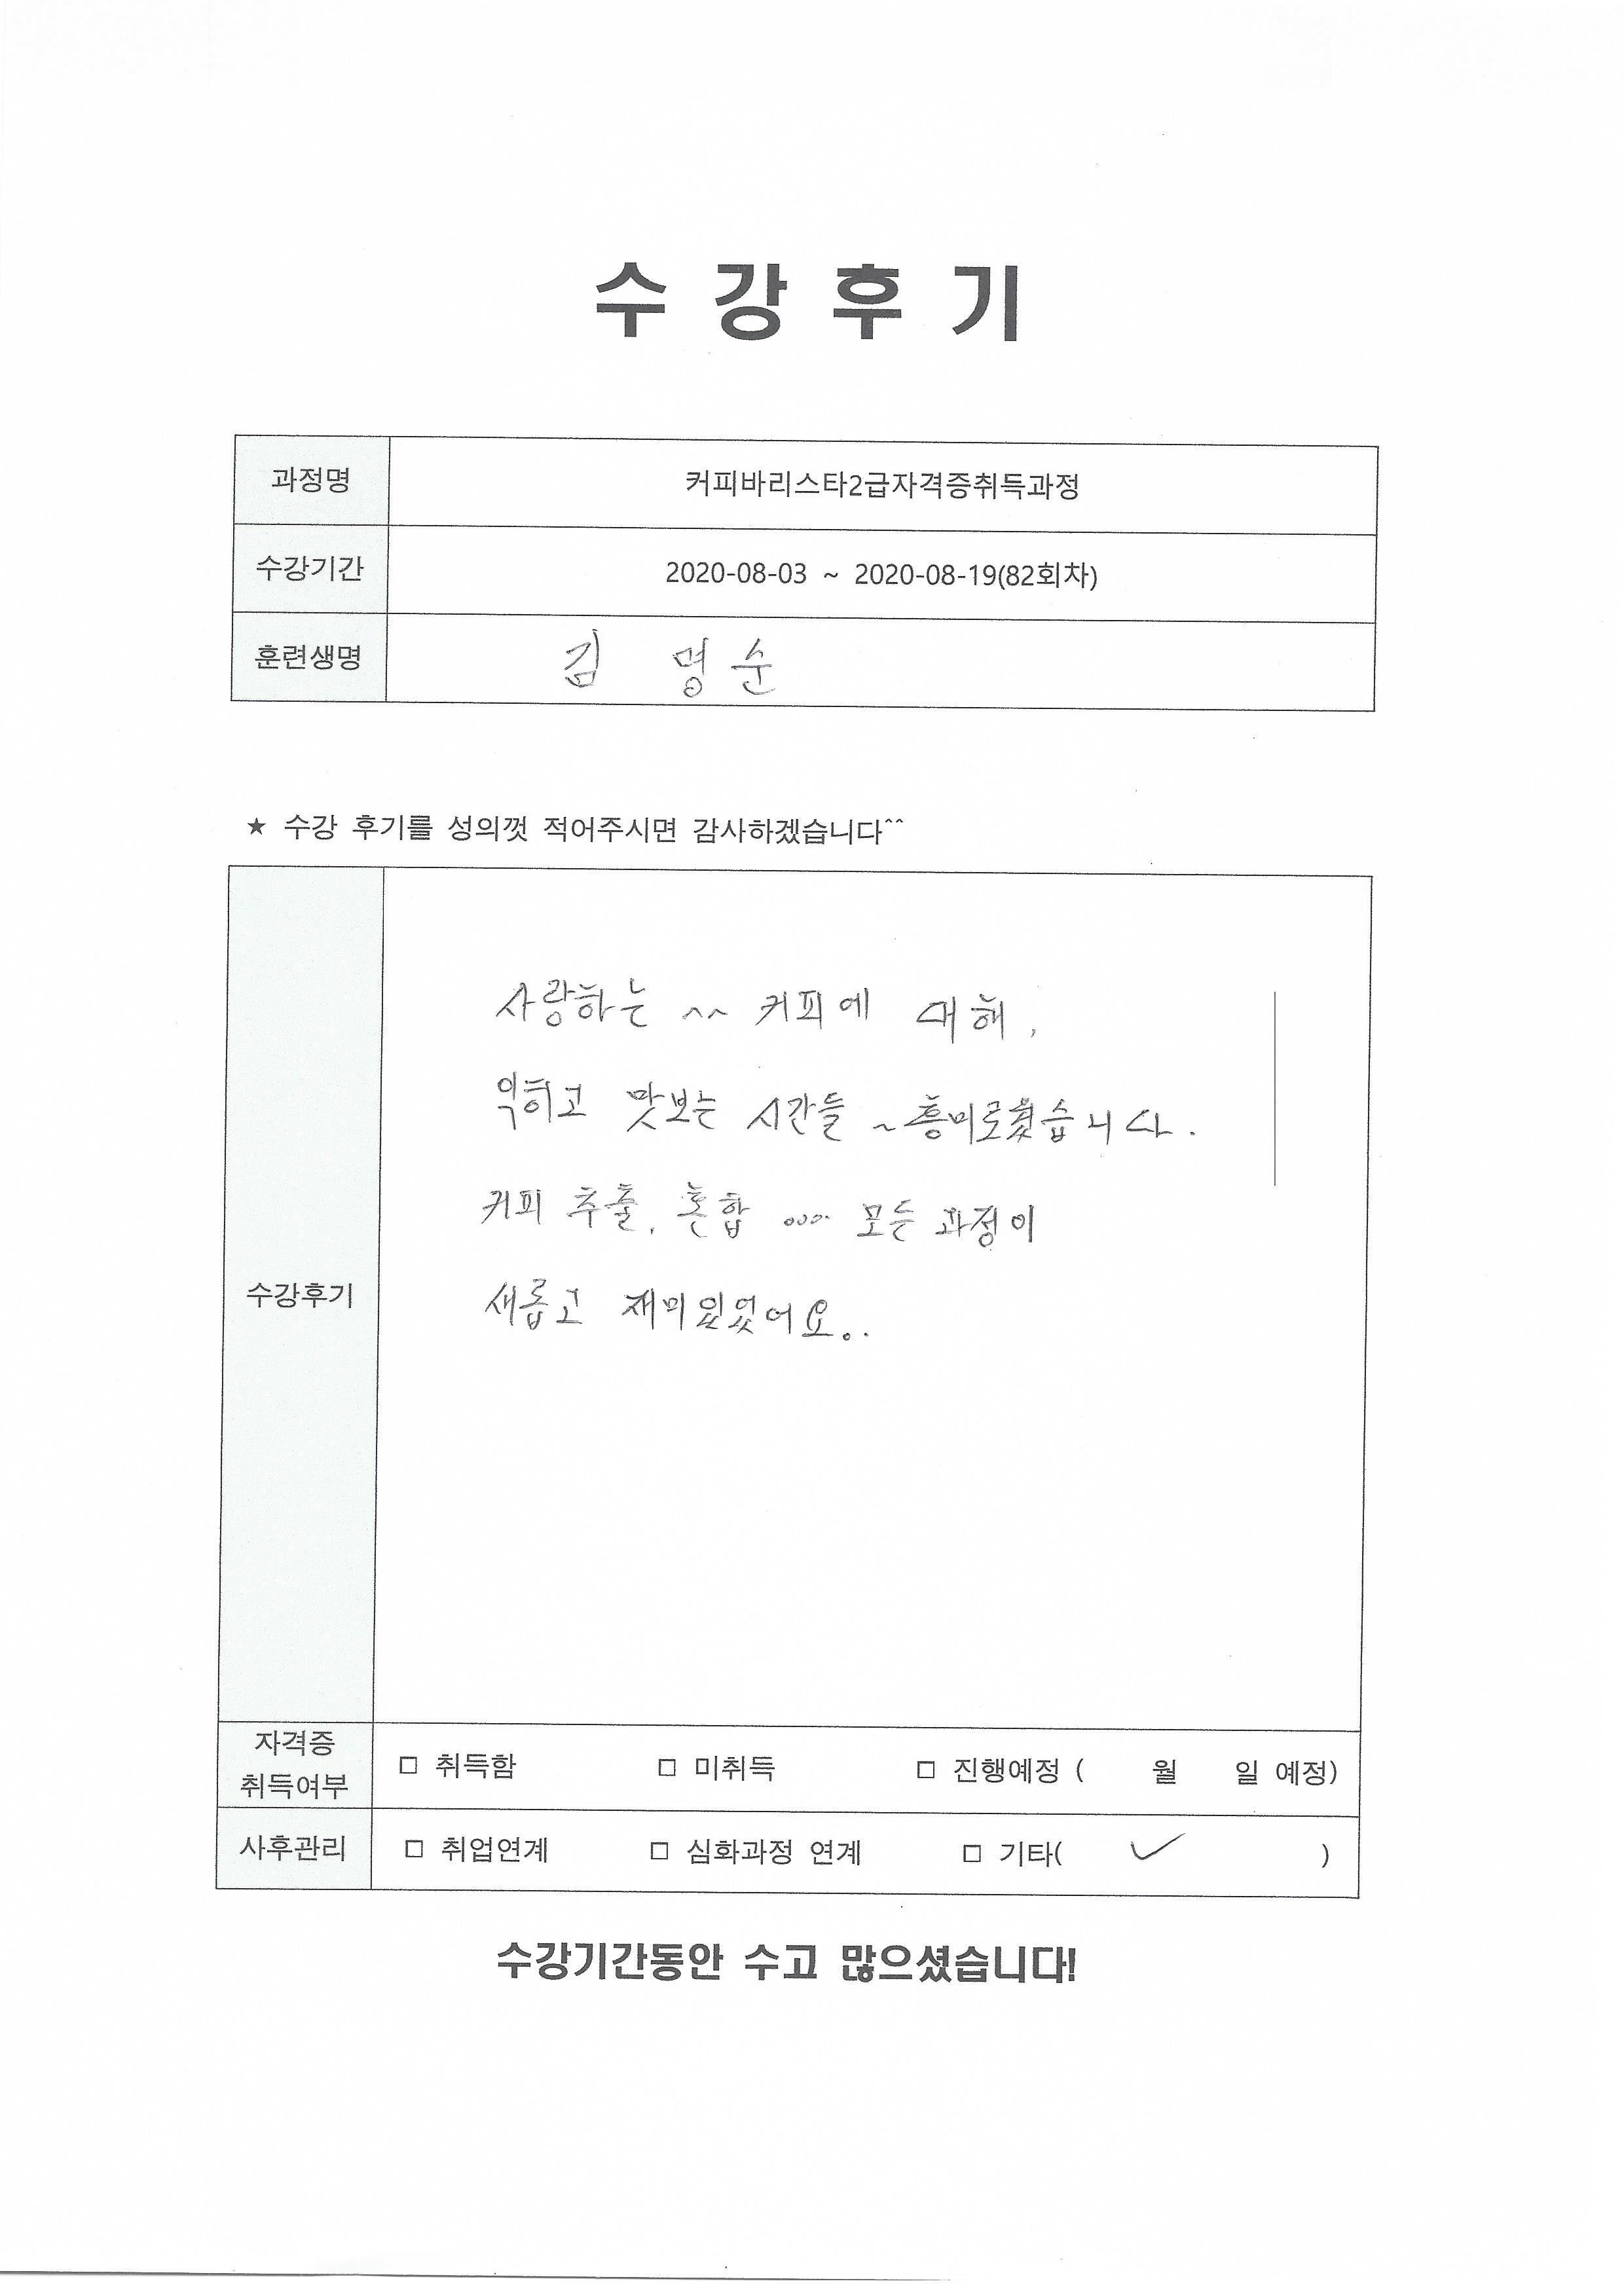 수 강 후 기
과정명 커피바리스타2급자격증취득과정
수강기간 2020-08-03 ~ 2020-08-19(82회차)
훈련생명 김 명순
★ 수강 후기를 성의껏 적어주시면 감사하겠습니다^^
수강후기
사랑하는 ^^ 커피에 대해,
익히고 맛보는 시간들 ~ 흥미로웠습니다.
커피 추출, 혼합 .... 모든 과정이
새롭고 재미있었어요..
자격증
취득여부 □ 취득함 □ 미취득 □ 진행예정 ( 월 일 예정)
사후관리 □ 취업연계 □ 심화과정 연계 □ 기타( ✓ )
수강기간동안 수고 많으셨습니다!